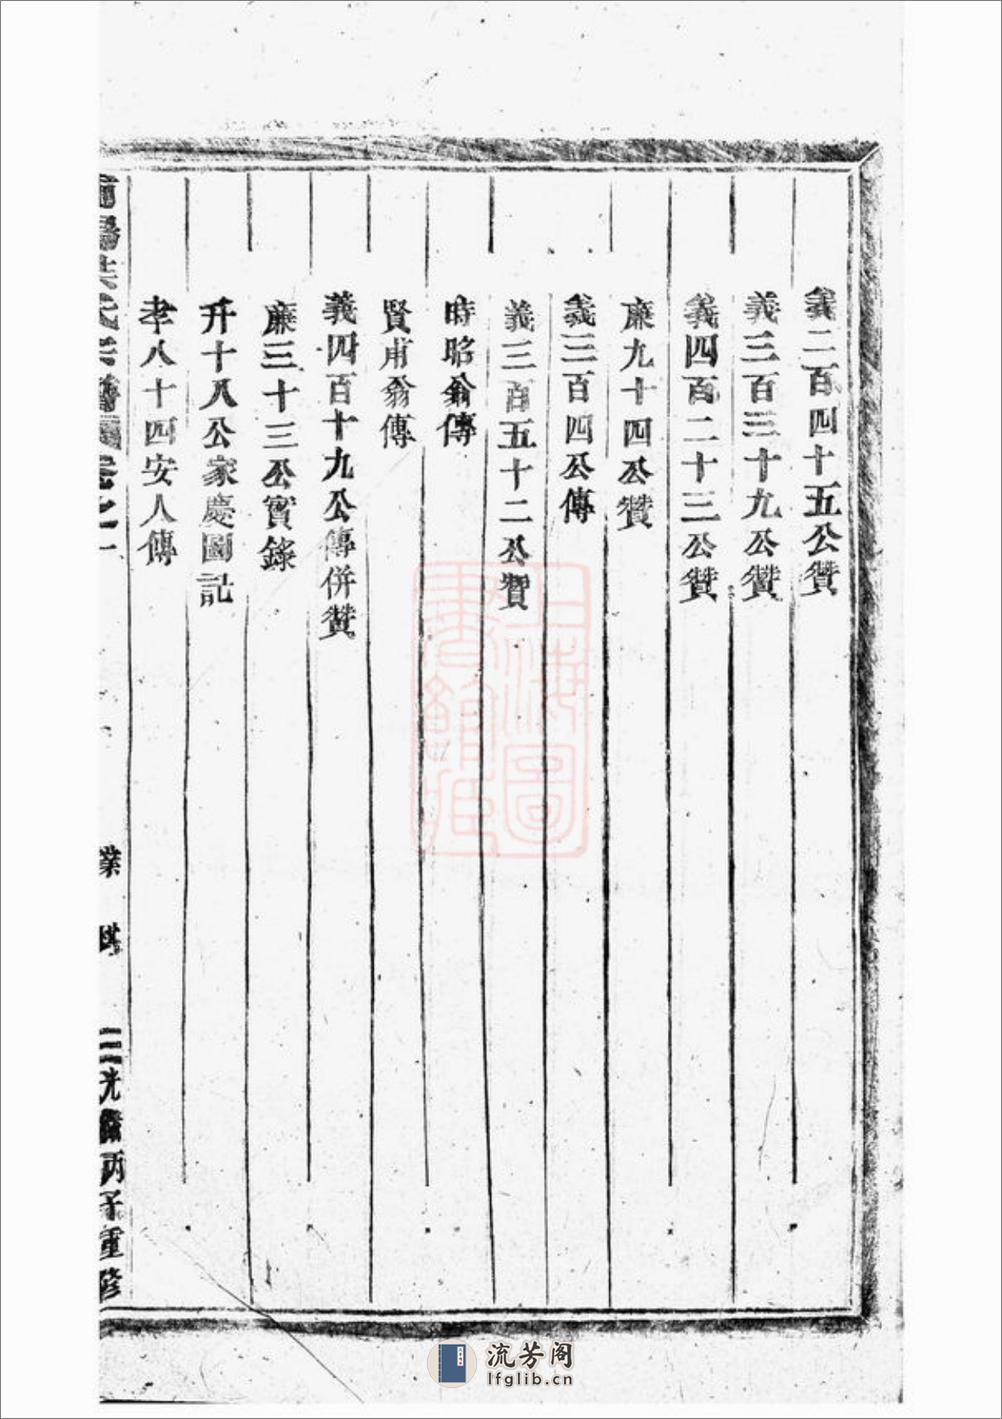 義二百四十五公贊
義三百三十九公贊
義四百二十三公贊
廉九十四公贊
義三百四公傳
義三百五十二公贊
時昭翁傳
賢甫翁傳
義四百十九公傳併贊
廉三十三公實錄
升十八公家慶圖記
孝八十四安人傳
氏宗譜 卷之一
二 光緒丙子重修
上海圖書館
流芳阁
lfglib.cn